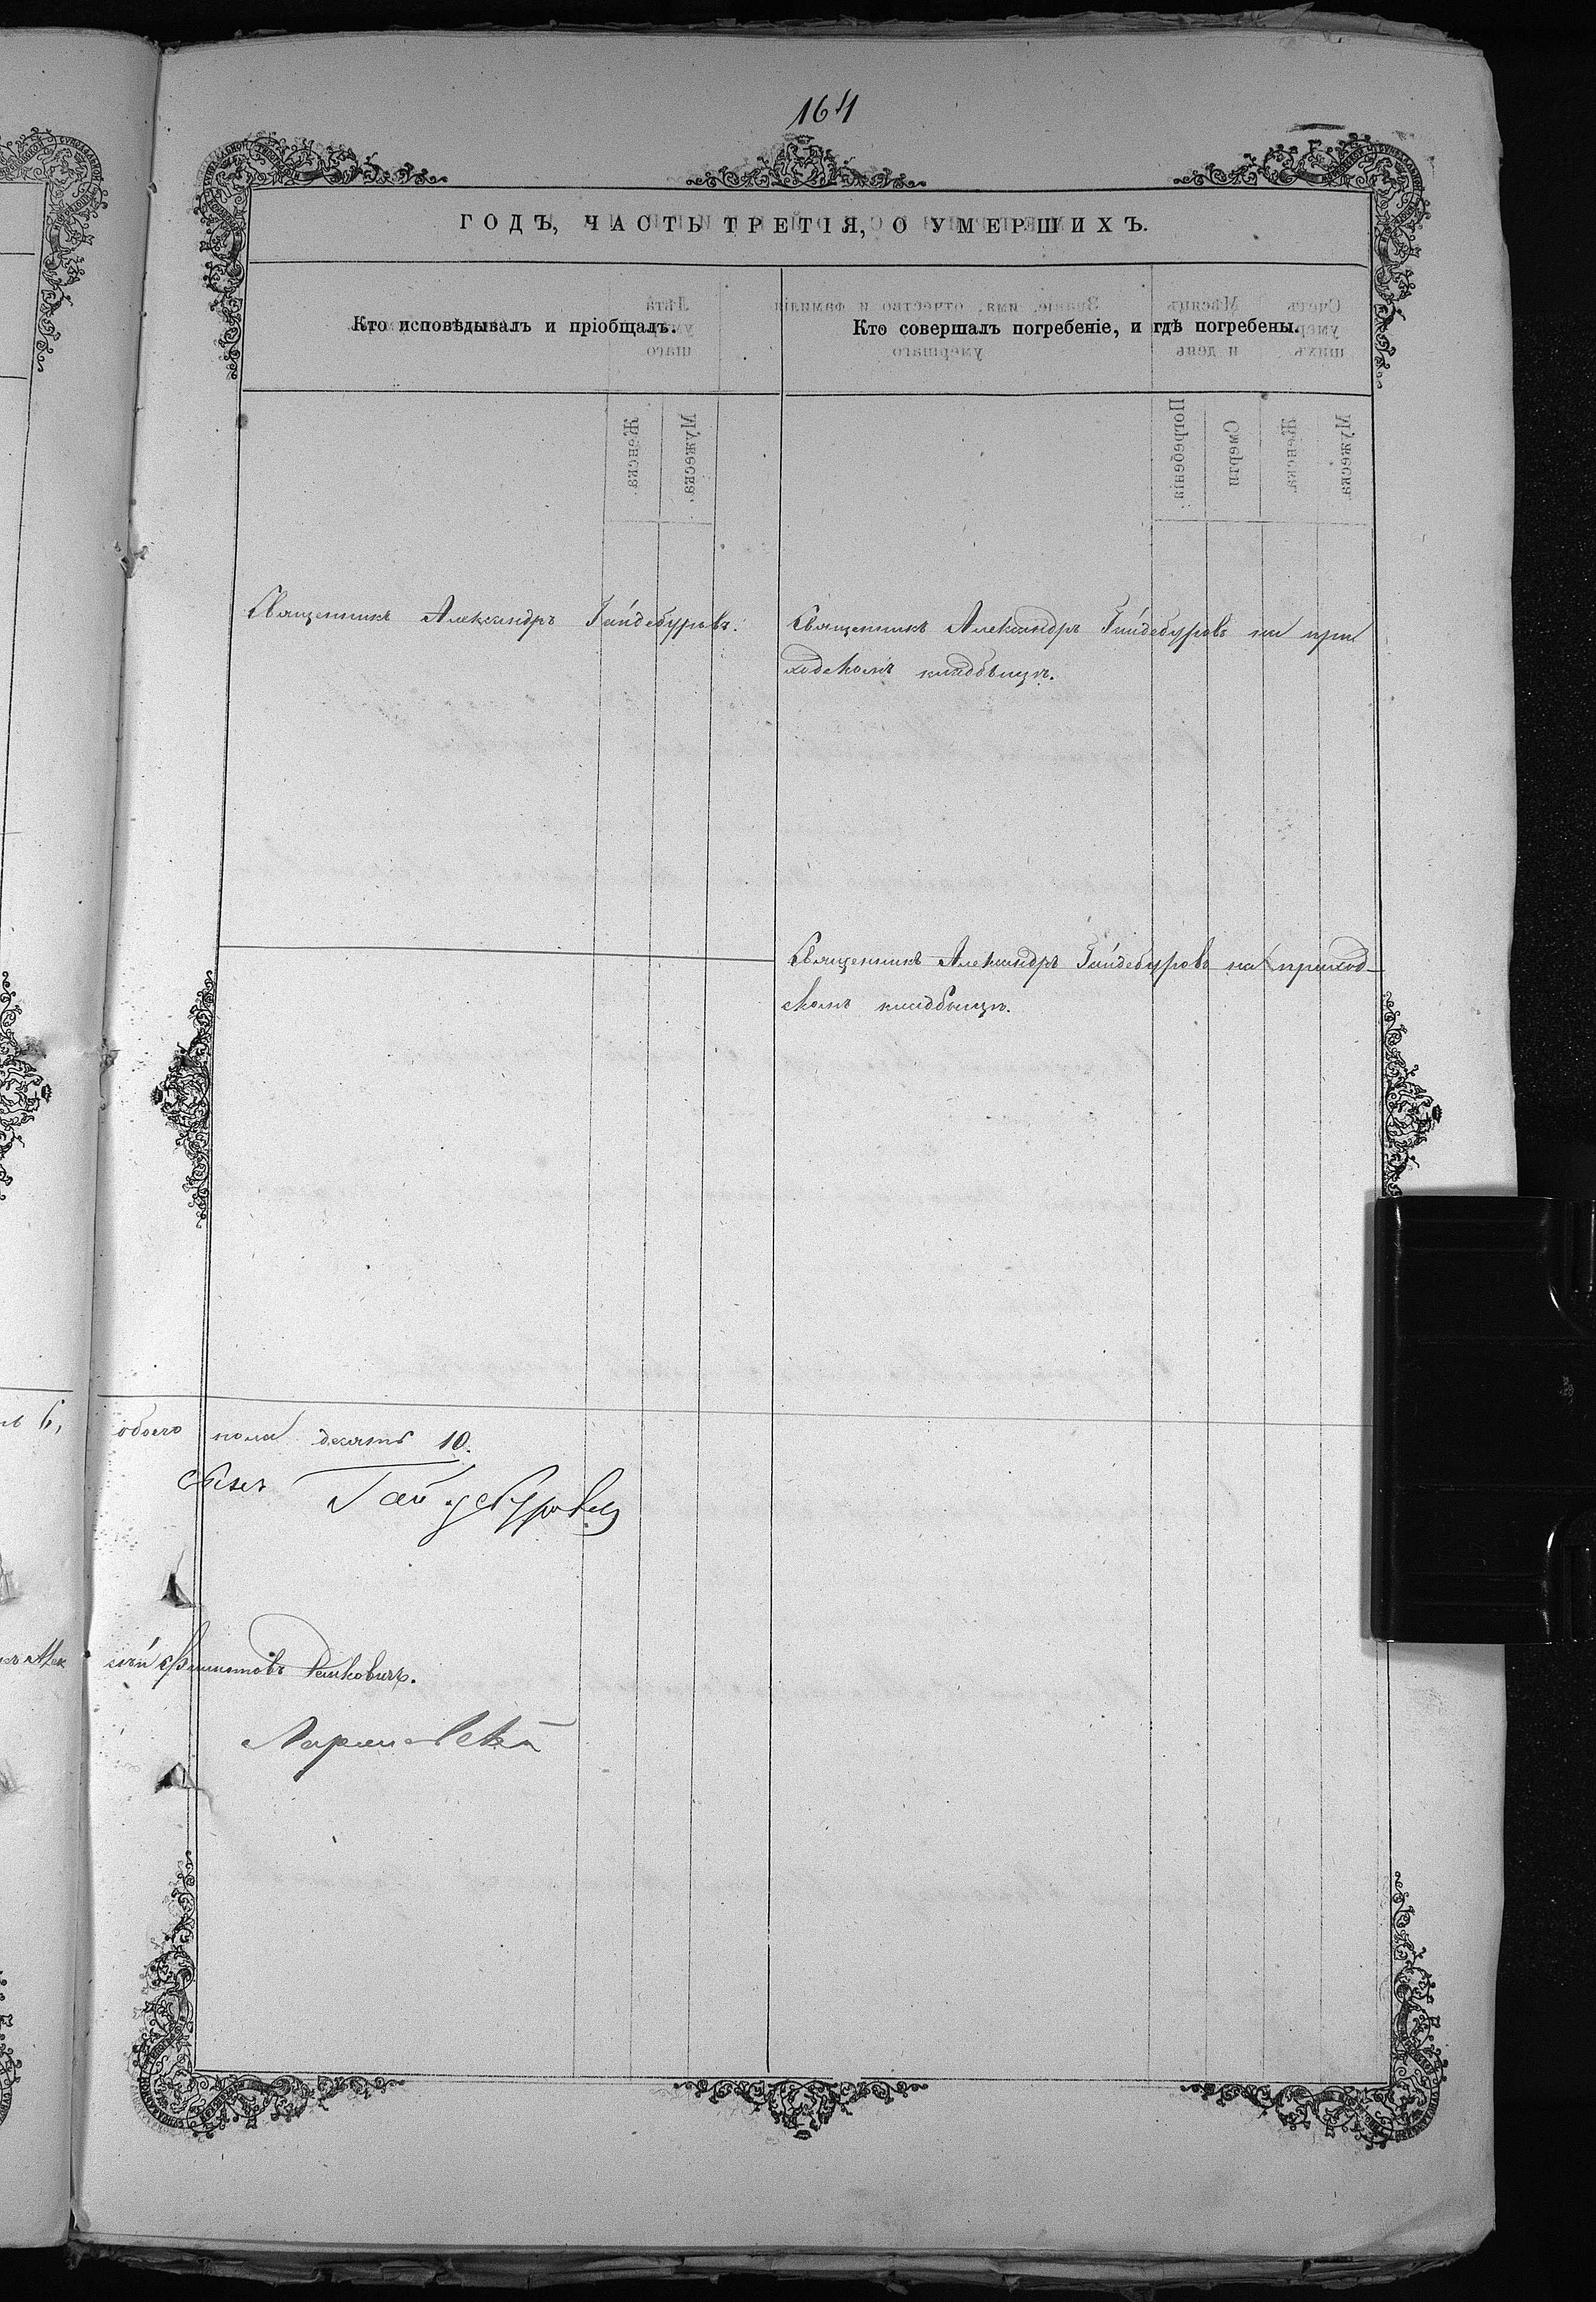 164
ГОДЪ, ЧАСТЬ ТРЕТІЯ, О УМЕРШИХЪ.
Кто исповѣдывалъ и пріобщалъ.
Кто совершалъ погребеніе, и гдѣ погребены.
Священникъ Александръ Гайдебуровъ.
Священникъ Александръ Гайдебуровъ на при
ходскомъ кладбищѣ.
Священникъ Александръ Гайдебуровъ на приход-
скомъ кладбищѣ.
6, обоего пола десять 10.
Гайдебуровъ